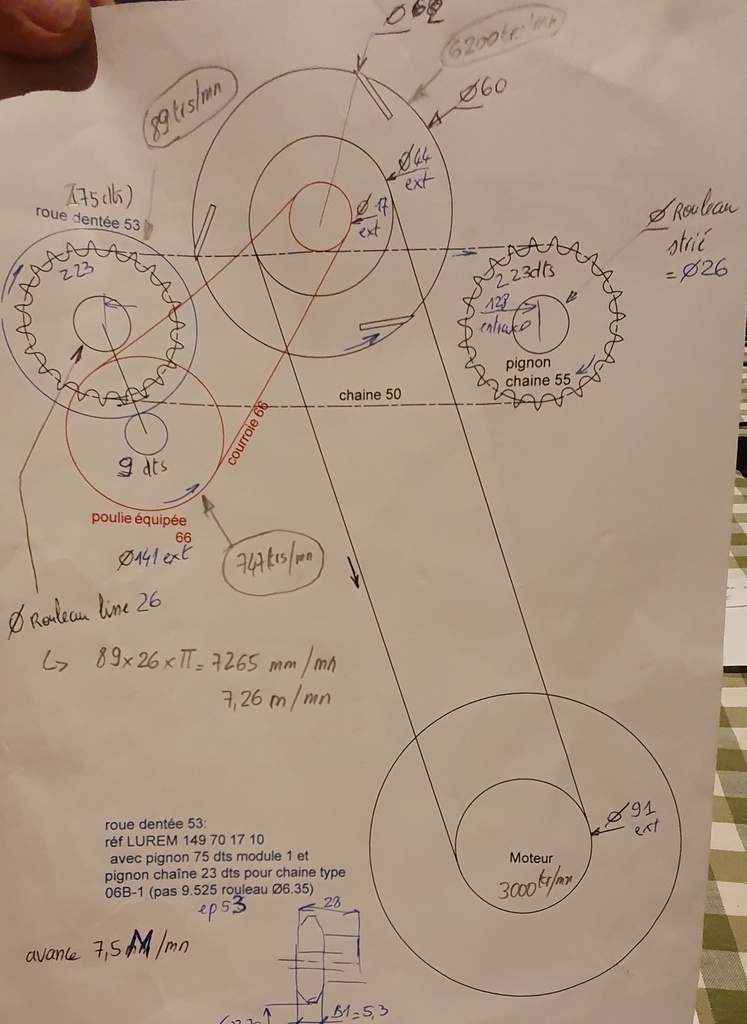 Ø62
6200trs/mn
Ø60
89trs/mn
Ø44
ext
Ø17
ext
Ø Rouleau
strié
= Ø26
75dts)
roue dentée 53
223
223dts
128
entraxe
pignon
chaine 55
chaine 50
courroie 66
9 dts
poulie équipée
66
Ø141 ext
747trs/mn
Ø Rouleau lisse 26
↳ 89×26×π= 7265 mm/mn
7,26 m/mn
Ø91
ext
Moteur
3000tr/mn
roue dentée 53:
réf LUREM 149 70 17 10
avec pignon 75 dts module 1 et
pignon chaîne 23 dts pour chaine type
06B-1 (pas 9.525 rouleau Ø6.35)
ep53
28
avance 7,5M/mn
B1=5,3